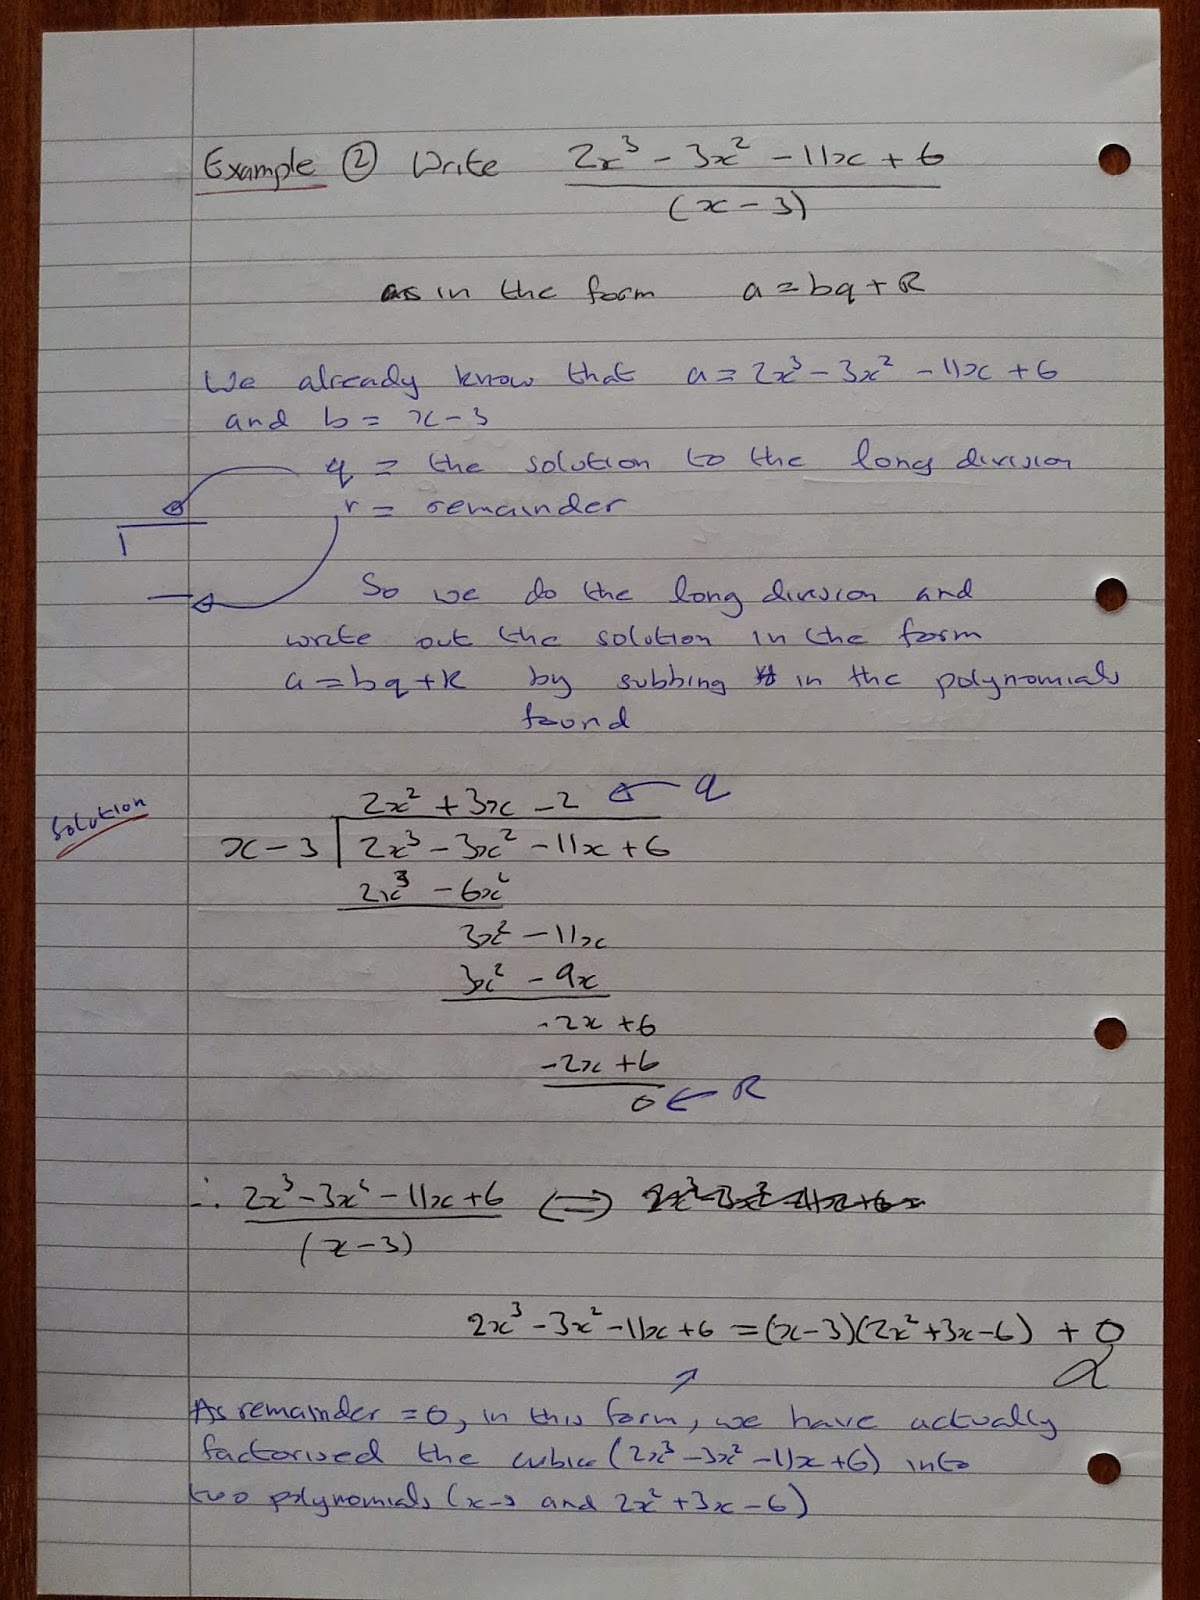 Example ② Write 2x³ - 3x² - 11x + 6
(x - 3)
as in the form a = bq + R
We already know that a = 2x³ - 3x² - 11x + 6
and b = x - 3
q = the solution to the long division
r = remainder
So we do the long division and
write out the solution in the form
a = bq + R by subbing in the polynomials
found
Solution
2x² + 3x - 2 ← q
x - 3 | 2x³ - 3x² - 11x + 6
2x³ - 6x²
3x² - 11x
3x² - 9x
-2x + 6
-2x + 6
0 ← R
∴ 2x³ - 3x² - 11x + 6 ⟺ 2x³ - 3x² - 11x + 6 =
(x - 3)
2x³ - 3x² - 11x + 6 = (x - 3)(2x² + 3x - 6) + 0
As remainder = 0, in this form, we have actually
factorised the cubic (2x³ - 3x² - 11x + 6) into
two polynomials (x - 3 and 2x² + 3x - 6)